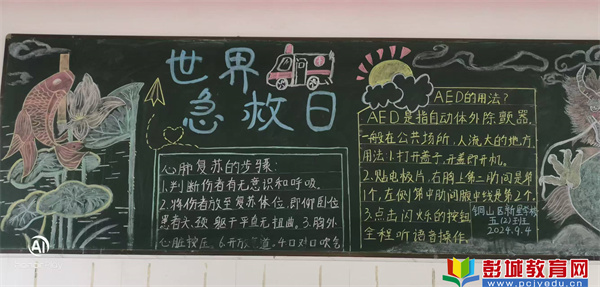 世界
急救日
心肺复苏的步骤:
1.判断伤者有无意识和呼吸.
2.将伤者放至复苏体位即仰卧位
患者头、颈、躯干平直无扭曲.3.胸外
心脏按压.6.开放气道.4.口对口吹气
AED的用法?
AED是指自动体外除颤器,
一般在公共场所,人流大的地方.
用法:1.打开盖子,开盖即开机.
2.贴电极片,右胸上第二肋间是第
1个,左侧第中肋间腋中线是第2个.
3.点击闪烁的按钮
全程听语音操作.
铜山区新星学校
五(2)班
2024.9.4
AI
彭城教育网
www.pcjyedu.cn